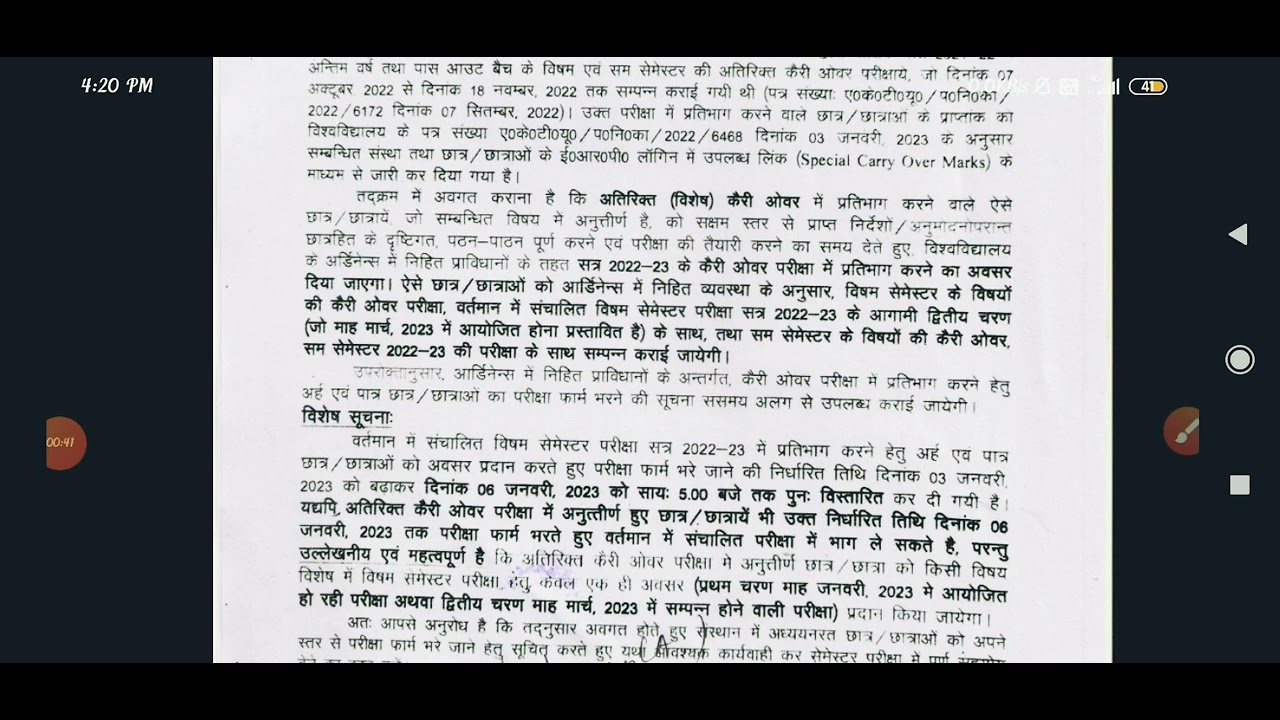 4:20 PM
41
00:41
अन्तिम वर्ष तथा पास आउट बैच के विषम एवं सम सेमेस्टर की अतिरिक्त कैरी ओवर परीक्षाये, जो दिनांक 07
अक्टूबर 2022 से दिनांक 18 नवम्बर, 2022 तक सम्पन्न कराई गयी थी (पत्र संख्याः ए०के०टी०यू०/प०नि०का०/
2022/6172 दिनांक 07 सितम्बर, 2022)। उक्त परीक्षा में प्रतिभाग करने वाले छात्र/छात्राओं के प्राप्तांक को
विश्वविद्यालय के पत्र संख्या ए०के०टी०यू०/प०नि०का०/2022/6468 दिनांक 03 जनवरी, 2023 के अनुसार
सम्बन्धित संस्था तथा छात्र/छात्राओं के ई०आर०पी० लॉगिन में उपलब्ध लिंक (Special Carry Over Marks) के
माध्यम से जारी कर दिया गया है।
तद्क्रम में अवगत कराना है कि अतिरिक्त (विशेष) कैरी ओवर में प्रतिभाग करने वाले ऐसे
छात्र/छात्रायें, जो सम्बन्धित विषय में अनुत्तीर्ण है, को सक्षम स्तर से प्राप्त निर्देशों/अनुमोदनोपरान्त
छात्रहित के दृष्टिगत, पठन-पाठन पूर्ण करने एवं परीक्षा की तैयारी करने का समय देते हुए, विश्वविद्यालय
के अर्डिनेन्स में निहित प्राविधानों के तहत सत्र 2022-23 के कैरी ओवर परीक्षा में प्रतिभाग करने का अवसर
दिया जाएगा। ऐसे छात्र/छात्राओं को आर्डिनेन्स में निहित व्यवस्था के अनुसार, विषम सेमेस्टर के विषयों
की कैरी ओवर परीक्षा, वर्तमान में संचालित विषम सेमेस्टर परीक्षा सत्र 2022-23 के आगामी द्वितीय चरण
(जो माह मार्च, 2023 में आयोजित होना प्रस्तावित है) के साथ, तथा सम सेमेस्टर के विषयों की कैरी ओवर,
सम सेमेस्टर 2022-23 की परीक्षा के साथ सम्पन्न कराई जायेगी।
उपरोक्तानुसार, आर्डिनेन्स में निहित प्राविधानों के अन्तर्गत, कैरी ओवर परीक्षा में प्रतिभाग करने हेतु
अर्ह एवं पात्र छात्र/छात्राओं का परीक्षा फार्म भरने की सूचना ससमय अलग से उपलब्ध कराई जायेगी।
विशेष सूचनाः
वर्तमान में संचालित विषम सेमेस्टर परीक्षा सत्र 2022-23 में प्रतिभाग करने हेतु अर्ह एवं पात्र
छात्र/छात्राओं को अवसर प्रदान करते हुए परीक्षा फार्म भरे जाने की निर्धारित तिथि दिनांक 03 जनवरी,
2023 को बढाकर दिनांक 06 जनवरी, 2023 को सायः 5.00 बजे तक पुनः विस्तारित कर दी गयी है।
यद्यपि अतिरिक्त कैरी ओवर परीक्षा में अनुत्तीर्ण हुए छात्र/छात्रायें भी उक्त निर्धारित तिथि दिनांक 06
जनवरी, 2023 तक परीक्षा फार्म भरते हुए वर्तमान में संचालित परीक्षा में भाग ले सकते है, परन्तु
उल्लेखनीय एवं महत्वपूर्ण है कि अतिरिक्त कैरी ओवर परीक्षा मे अनुत्तीर्ण छात्र/छात्रा को किसी विषय
विशेष में विषम सेमेस्टर परीक्षा हेतु केवल एक ही अवसर (प्रथम चरण माह जनवरी, 2023 मे आयोजित
हो रही परीक्षा अथवा द्वितीय चरण माह मार्च, 2023 में सम्पन्न होने वाली परीक्षा) प्रदान किया जायेगा।
अतः आपसे अनुरोध है कि तद्नुसार अवगत होते हुए संस्थान में अध्ययनरत छात्र/छात्राओं को अपने
स्तर से परीक्षा फार्म भरे जाने हेतु सूचित करते हुए यथा आवश्यक कार्यवाही कर सेमेस्टर परीक्षा में पूर्ण